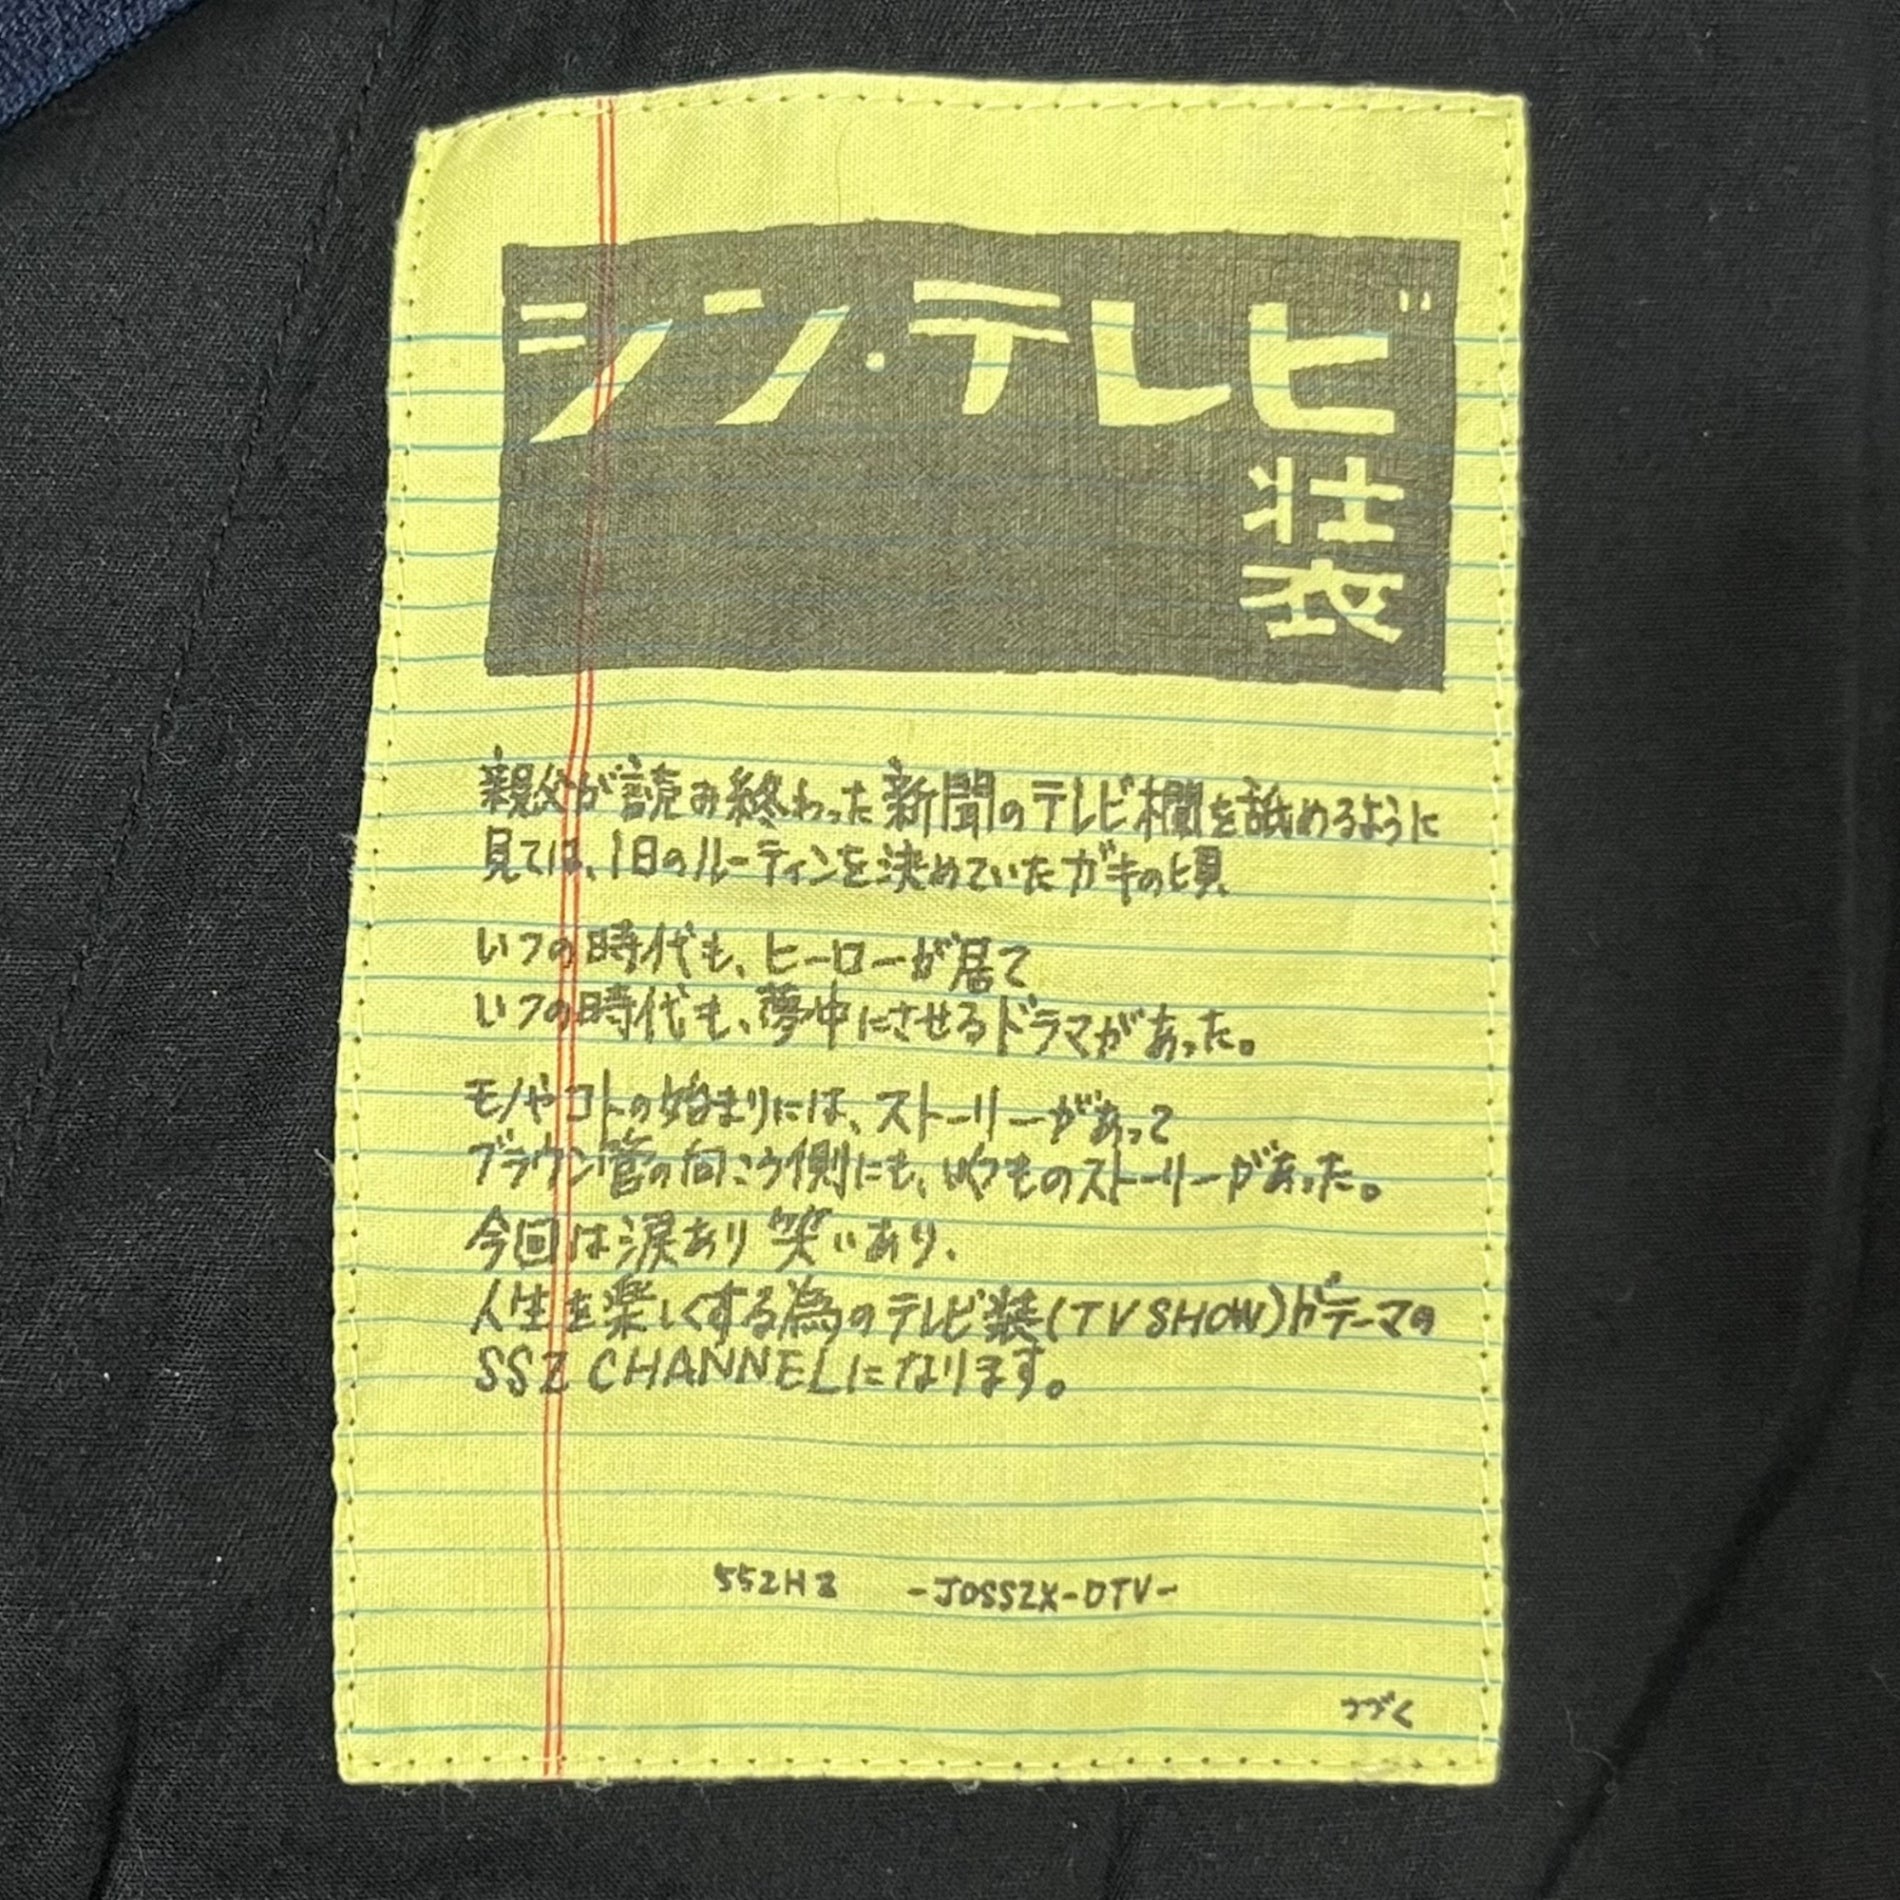 シン・テレビ
壮
衣
親父が読み終わった新聞のテレビ欄を舐めるように
見ては、1日のルーティンを決めていたガキの頃、
いつの時代も、ヒーローが居て
いつの時代も、夢中にさせるドラマがあった。
モノやコトの始まりには、ストーリーがあって
ブラウン管の向こう側にも、いくつものストーリーがあった。
今回は涙あり笑いあり、
人生を楽しくする為のテレビ装(TV SHOW)がテーマの
SSZ CHANNELになります。
SSZHZ -JOSSZX-DTV-
つづく